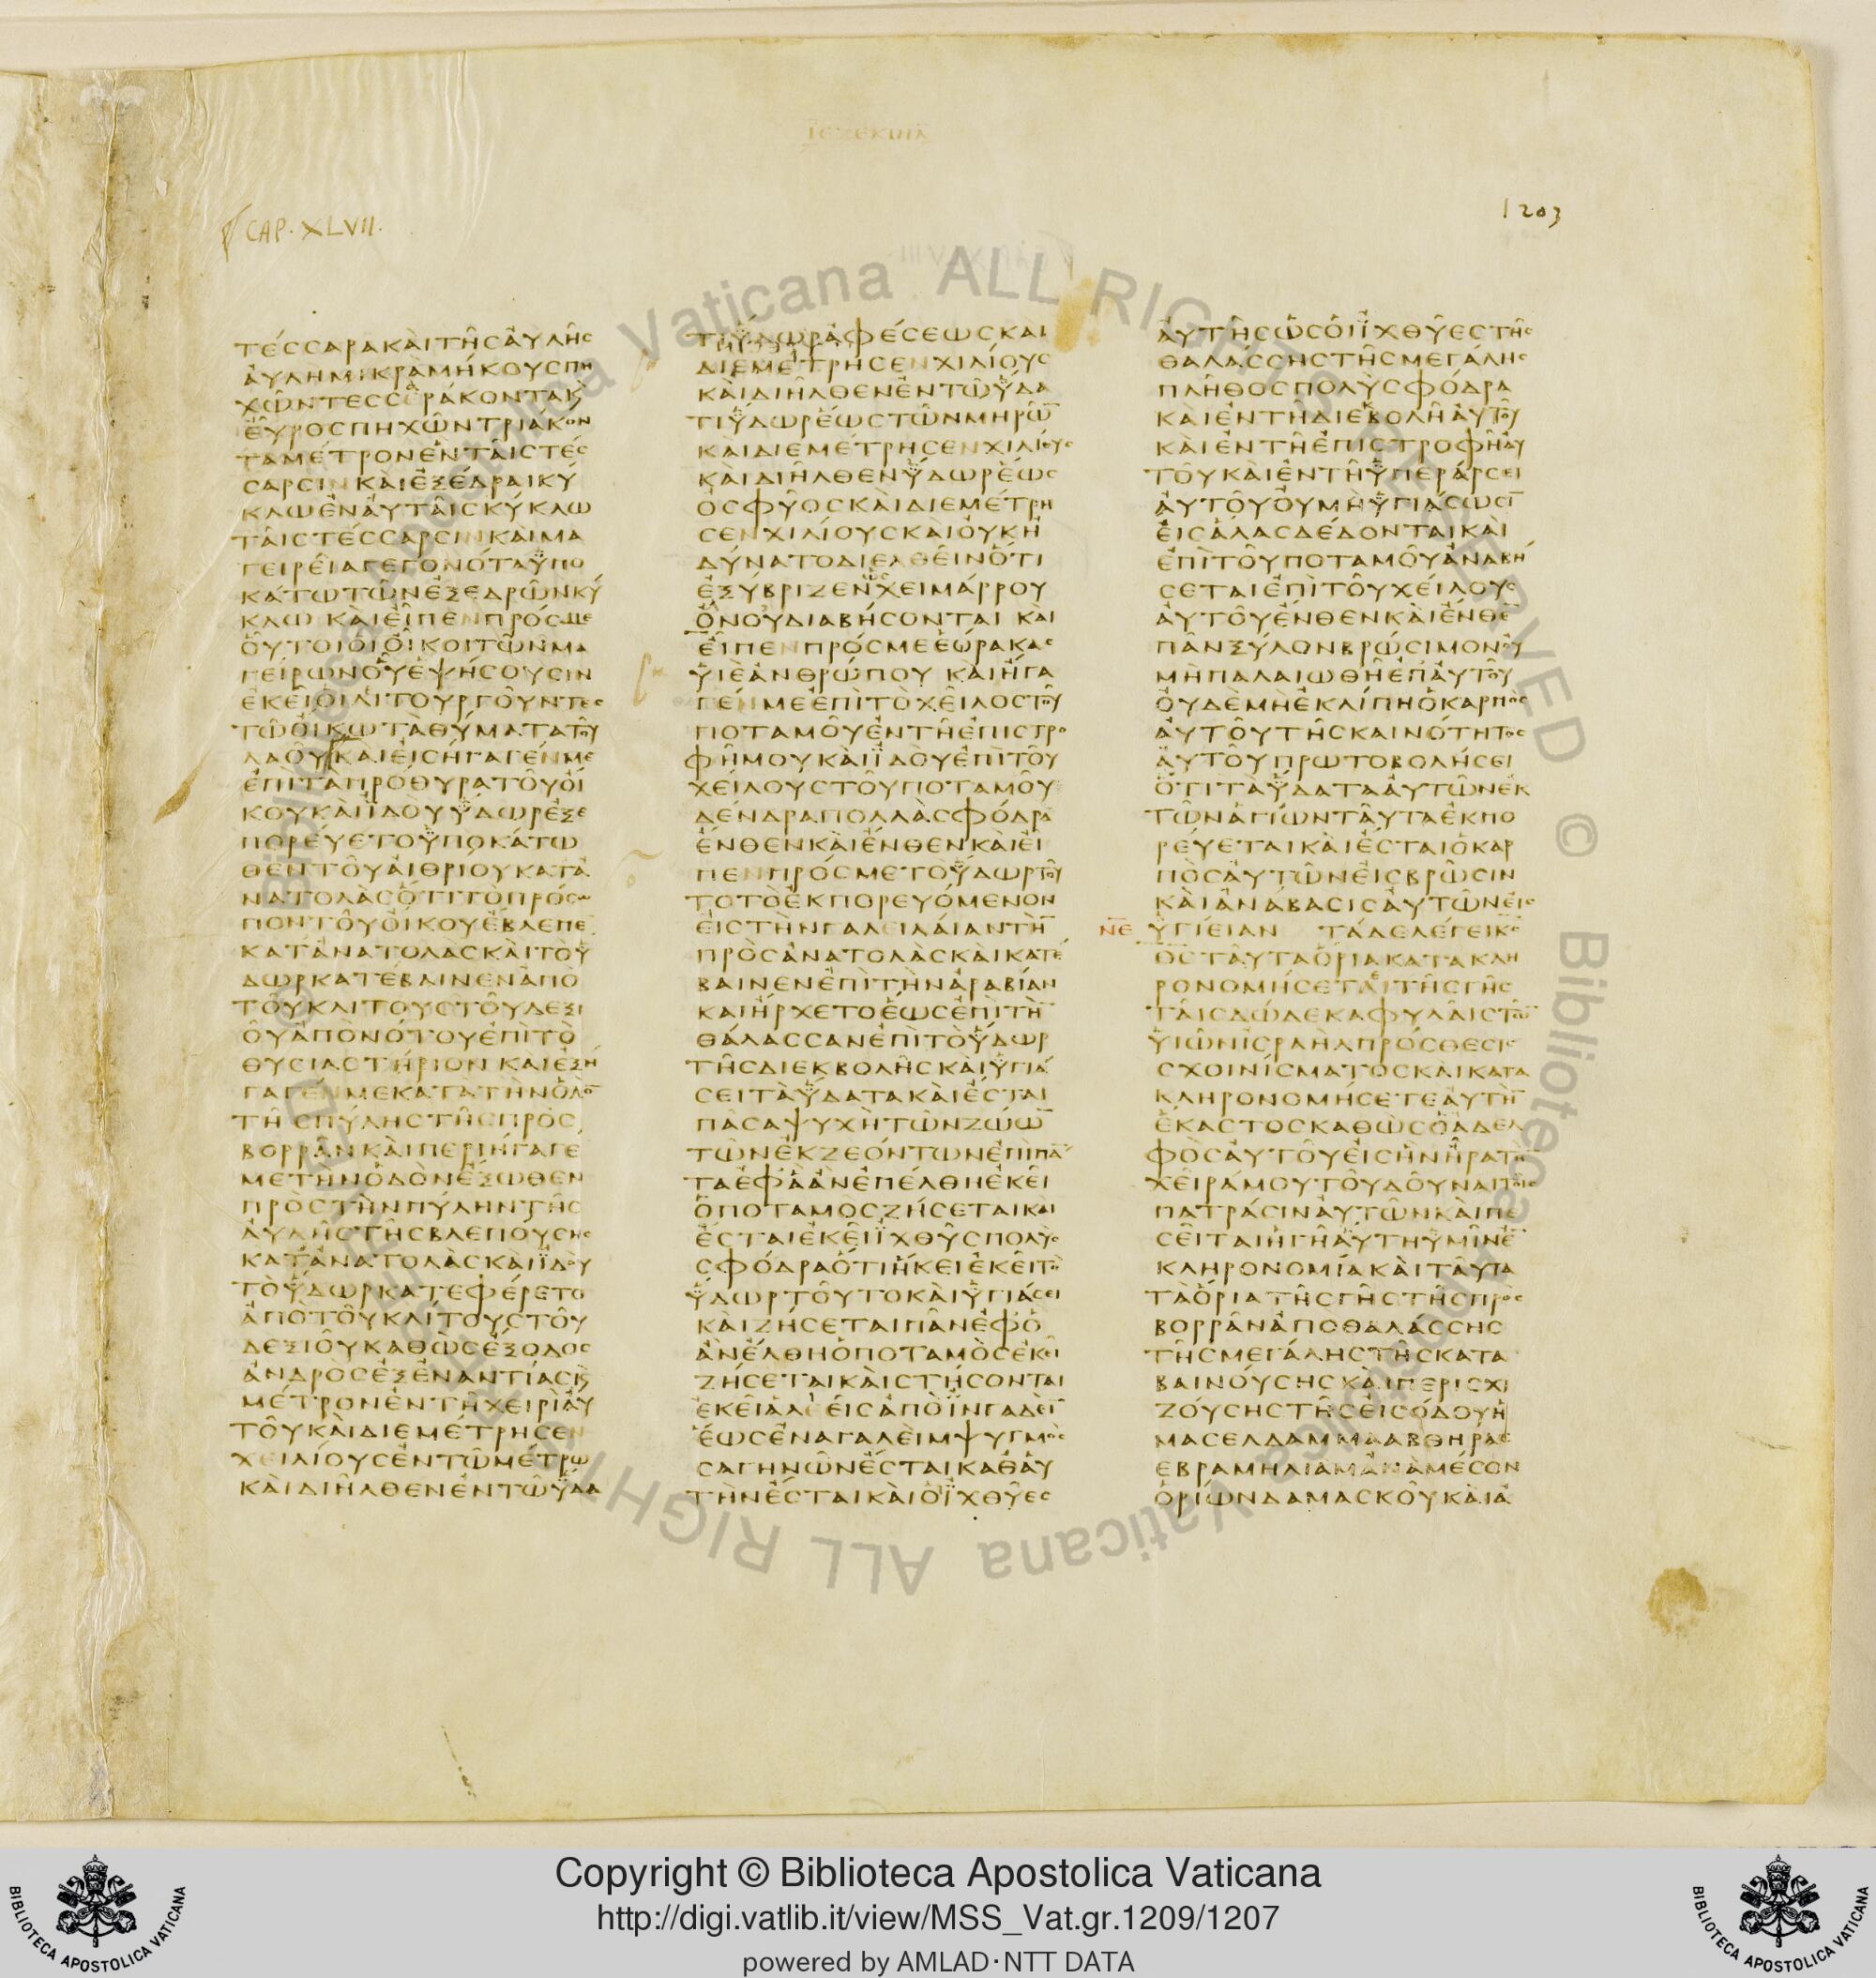 ΙΕΖΕΚΙΗΛ
CAP. XLVII.
1203
ΤΕϹϹΑΡΑΚΑΙΤΗϹΑΥΛΗϹ
ΑΥΛΗΜΙΚΡΑΜΗΚΟΥϹΠΗ
ΧΩΝΤΕϹϹΕΡΑΚΟΝΤΑΚ
ΕΥΡΟϹΠΗΧΩΝΤΡΙΑΚΟΝ
ΤΑΜΕΤΡΟΝΕΝΤΑΙϹΤΕϹ
ϹΑΡϹΙΝΚΑΙΕΞΕΔΡΑΙΚΥ
ΚΛΩΕΝΑΥΤΑΙϹΚΥΚΛΩ
ΤΑΙϹΤΕϹϹΑΡϹΙΝΚΑΙΜΑ
ΓΕΙΡΕΙΑΓΕΓΟΝΟΤΑΥΠΟ
ΚΑΤΩΤΩΝΕΞΕΔΡΩΝΚΥ
ΚΛΩ ΚΑΙΕΙΠΕΝΠΡΟϹΜΕ
ΟΥΤΟΙΟΙΟΙΚΟΙΤΩΝΜΑ
ΓΕΙΡΩΝΟΥΕΨΗϹΟΥϹΙΝ
ΕΚΕΙΟΙΛΙΤΟΥΡΓΟΥΝΤΕϹ
ΤΩΟΙΚΩΤΑΘΥΜΑΤΑΤΟΥ
ΛΑΟΥΚΑΙΕΙϹΗΓΑΓΕΝΜΕ
ΕΠΙΤΑΠΡΟΘΥΡΑΤΟΥΟΙ
ΚΟΥΚΑΙΙΔΟΥΥΔΩΡΕΞΕ
ΠΟΡΕΥΕΤΟΥΠΟΚΑΤΩ
ΘΕΝΤΟΥΑΙΘΡΙΟΥΚΑΤΑ
ΝΑΤΟΛΑϹΟΤΙΤΟΠΡΟϹΩ
ΠΟΝΤΟΥΟΙΚΟΥΕΒΛΕΠΕ
ΚΑΤΑΝΑΤΟΛΑϹΚΑΙΤΟΥ
ΔΩΡΚΑΤΕΒΑΙΝΕΝΑΠΟ
ΤΟΥΚΛΙΤΟΥϹΤΟΥΔΕΞΙ
ΟΥΑΠΟΝΟΤΟΥΕΠΙΤΟ
ΘΥϹΙΑϹΤΗΡΙΟΝ ΚΑΙΕΞΗ
ΓΑΓΕΝΜΕΚΑΤΑΤΗΝΟΔΟ̅
ΤΗϹΠΥΛΗϹΤΗϹΠΡΟϹ
ΒΟΡΡΑΝΚΑΙΠΕΡΙΗΓΑΓΕ
ΜΕΤΗΝΟΔΟΝΕΞΩΘΕΝ
ΠΡΟϹΤΗΝΠΥΛΗΝΤΗϹ
ΑΥΛΗϹΤΗϹΒΛΕΠΟΥϹΗϹ
ΚΑΤΑΝΑΤΟΛΑϹΚΑΙΙΔΟΥ
ΤΟΥΔΩΡΚΑΤΕΦΕΡΕΤΟ
ΑΠΟΤΟΥΚΛΙΤΟΥϹΤΟΥ
ΔΕΞΙΟΥΚΑΘΩϹΕΞΟΔΟϹ
ΑΝΔΡΟϹΕΞΕΝΑΝΤΙΑϹΚ
ΜΕΤΡΟΝΕΝΤΗΧΕΙΡΙΑΥ
ΤΟΥΚΑΙΔΙΕΜΕΤΡΗϹΕΝ
ΧΕΙΛΙΟΥϹΕΝΤΩΜΕΤΡΩ
ΚΑΙΔΙΗΛΘΕΝΕΝΤΩΥΔΑ
ΤΙΥΔΩΡΑΦΕϹΕΩϹΚΑΙ
ΔΙΕΜΕΤΡΗϹΕΝΧΙΛΙΟΥϹ
ΚΑΙΔΙΗΛΘΕΝΕΝΤΩΥΔΑ
ΤΙΥΔΩΡΕΩϹΤΩΝΜΗΡΩ̅
ΚΑΙΔΙΕΜΕΤΡΗϹΕΝΧΙΛΙΟΥϹ
ΚΑΙΔΙΗΛΘΕΝΥΔΩΡΕΩϹ
ΟϹΦΥΟϹΚΑΙΔΙΕΜΕΤΡΗ
ϹΕΝΧΙΛΙΟΥϹΚΑΙΟΥΚΗ
ΔΥΝΑΤΟΔΙΕΛΘΕΙΝΟΤΙ
ΕΞΥΒΡΙΖΕΝΧΕΙΜΑΡΡΟΥ
ΟΝΟΥΔΙΑΒΗϹΟΝΤΑΙ ΚΑΙ
ΕΙΠΕΝΠΡΟϹΜΕΕΩΡΑΚΑϹ
ΥΙΕΑΝΘΡΩΠΟΥ ΚΑΙΗΓΑ
ΓΕΝΜΕΕΠΙΤΟΧΕΙΛΟϹΤΟΥ
ΠΟΤΑΜΟΥΕΝΤΗΕΠΙϹΤΡΟ
ΦΗΜΟΥΚΑΙΙΔΟΥΕΠΙΤΟΥ
ΧΕΙΛΟΥϹΤΟΥΠΟΤΑΜΟΥ
ΔΕΝΔΡΑΠΟΛΛΑϹΦΟΔΡΑ
ΕΝΘΕΝΚΑΙΕΝΘΕΝΚΑΙΕΙ
ΠΕΝΠΡΟϹΜΕΤΟΥΔΩΡΤΟΥ
ΤΟΤΟΕΚΠΟΡΕΥΟΜΕΝΟΝ
ΕΙϹΤΗΝΓΑΛΕΙΛΑΙΑΝΤΗ̅
ΠΡΟϹΑΝΑΤΟΛΑϹΚΑΙΚΑΤΕ
ΒΑΙΝΕΝΕΠΙΤΗΝΑΡΑΒΙΑΝ
ΚΑΙΗΡΧΕΤΟΕΩϹΕΠΙΤΗ̅
ΘΑΛΑϹϹΑΝΕΠΙΤΟΥΔΩΡ
ΤΗϹΔΙΕΚΒΟΛΗϹΚΑΙΥΓΙΑ
ϹΕΙΤΑΥΔΑΤΑΚΑΙΕϹΤΑΙ
ΠΑϹΑΨΥΧΗΤΩΝΖΩΩ̅
ΤΩΝΕΚΖΕΟΝΤΩΝΕΠΙΠΑ̅
ΤΑΕΦΑΑΝΕΠΕΛΘΗΕΚΕΙ
ΟΠΟΤΑΜΟϹΖΗϹΕΤΑΙΚΑΙ
ΕϹΤΑΙΕΚΕΙΙΧΘΥϹΠΟΛΥϹ
ϹΦΟΔΡΑΟΤΙΗΚΕΙΕΚΕΙΤΟ
ΥΔΩΡΤΟΥΤΟΚΑΙΥΓΙΑϹΕΙ
ΚΑΙΖΗϹΕΤΑΙΠΑΝΕΦΟ
ΑΝΕΛΘΗΟΠΟΤΑΜΟϹΕΚΕΙ
ΖΗϹΕΤΑΙΚΑΙϹΤΗϹΟΝΤΑΙ
ΕΚΕΙΑΛΕΕΙϹΑΠΟΙΝΓΑΔΕΙ̅
ΕΩϹΕΝΑΓΑΛΕΙΜΨΥΓΜΟϹ
ϹΑΓΗΝΩΝΕϹΤΑΙΚΑΘΑΥ
ΤΗΝΕϹΤΑΙΚΑΙΟΙΙΧΘΥΕϹ
ΑΥΤΗϹΩϹΟΙΙΧΘΥΕϹΤΗϹ
ΘΑΛΑϹϹΗϹΤΗϹΜΕΓΑΛΗϹ
ΠΛΗΘΟϹΠΟΛΥϹΦΟΔΡΑ
ΚΑΙΕΝΤΗΔΙΕΚΒΟΛΗΑΥΤΟΥ
ΚΑΙΕΝΤΗΕΠΙϹΤΡΟΦΗΑΥ
ΤΟΥΚΑΙΕΝΤΗΥΠΕΡΑΡϹΕΙ
ΑΥΤΟΥΟΥΜΗΥΓΙΑϹΩϹΙ̅
ΕΙϹΑΛΑϹΔΕΔΟΝΤΑΙΚΑΙ
ΕΠΙΤΟΥΠΟΤΑΜΟΥΑΝΑΒΗ
ϹΕΤΑΙΕΠΙΤΟΥΧΕΙΛΟΥϹ
ΑΥΤΟΥΕΝΘΕΝΚΑΙΕΝΘΕ̅
ΠΑΝΞΥΛΟΝΒΡΩϹΙΜΟΝΟΥ
ΜΗΠΑΛΑΙΩΘΗΕΠΑΥΤΟΥ
ΟΥΔΕΜΗΕΚΛΙΠΗΟΚΑΡΠΟϹ
ΑΥΤΟΥΤΗϹΚΑΙΝΟΤΗΤΟϹ
ΑΥΤΟΥΠΡΩΤΟΒΟΛΗϹΕΙ
ΟΤΙΤΑΥΔΑΤΑΑΥΤΩΝΕΚ
ΤΩΝΑΓΙΩΝΤΑΥΤΑΕΚΠΟ
ΡΕΥΕΤΑΙΚΑΙΕϹΤΑΙΟΚΑΡ
ΠΟϹΑΥΤΩΝΕΙϹΒΡΩϹΙΝ
ΚΑΙΑΝΑΒΑϹΙϹΑΥΤΩΝΕΙϹ
ΝΕ ΥΓΙΕΙΑΝ ΤΑΔΕΛΕΓΕΙΚϹ
ΘϹΤΑΥΤΑΟΡΙΑΚΑΤΑΚΛΗ
ΡΟΝΟΜΗϹΕΤΑΙΤΗϹΓΗϹ
ΤΑΙϹΔΩΔΕΚΑΦΥΛΑΙϹΤΩ̅
ΥΙΩΝΙϹΡΑΗΛΠΡΟϹΘΕϹΙϹ
ϹΧΟΙΝΙϹΜΑΤΟϹΚΑΙΚΑΤΑ
ΚΛΗΡΟΝΟΜΗϹΕΤΕΑΥΤΗ̅
ΕΚΑϹΤΟϹΚΑΘΩϹΟΑΔΕΛ
ΦΟϹΑΥΤΟΥΕΙϹΗΝΗΡΑΤΗ̅
ΧΕΙΡΑΜΟΥΤΟΥΔΟΥΝΑΙΤΟΙϹ
ΠΑΤΡΑϹΙΝΑΥΤΩΝΚΑΙΠΕ
ϹΕΙΤΑΙΗΓΗΑΥΤΗΥΜΙΝΕ̅
ΚΛΗΡΟΝΟΜΙΑΚΑΙΤΑΥΤΑ
ΤΑΟΡΙΑΤΗϹΓΗϹΤΗϹΠΡΟϹ
ΒΟΡΡΑΝΑΠΟΘΑΛΑϹϹΗϹ
ΤΗϹΜΕΓΑΛΗϹΤΗϹΚΑΤΑ
ΒΑΙΝΟΥϹΗϹΚΑΙΠΕΡΙϹΧΙ
ΖΟΥϹΗϹΤΗϹΕΙϹΟΔΟΥΗ
ΜΑϹΕΛΔΑΜΜΑΑΒΘΗΡΑϹ
ΕΒΡΑΜΗΛΙΑΜΑΝΑΜΕϹΟΝ
ΟΡΙΩΝΔΑΜΑϹΚΟΥΚΑΙΑ
Copyright © Biblioteca Apostolica Vaticana
http://digi.vatlib.it/view/MSS_Vat.gr.1209/1207
powered by AMLAD·NTT DATA
BIBLIOTECA APOSTOLICA VATICANA
BIBLIOTECA APOSTOLICA VATICANA